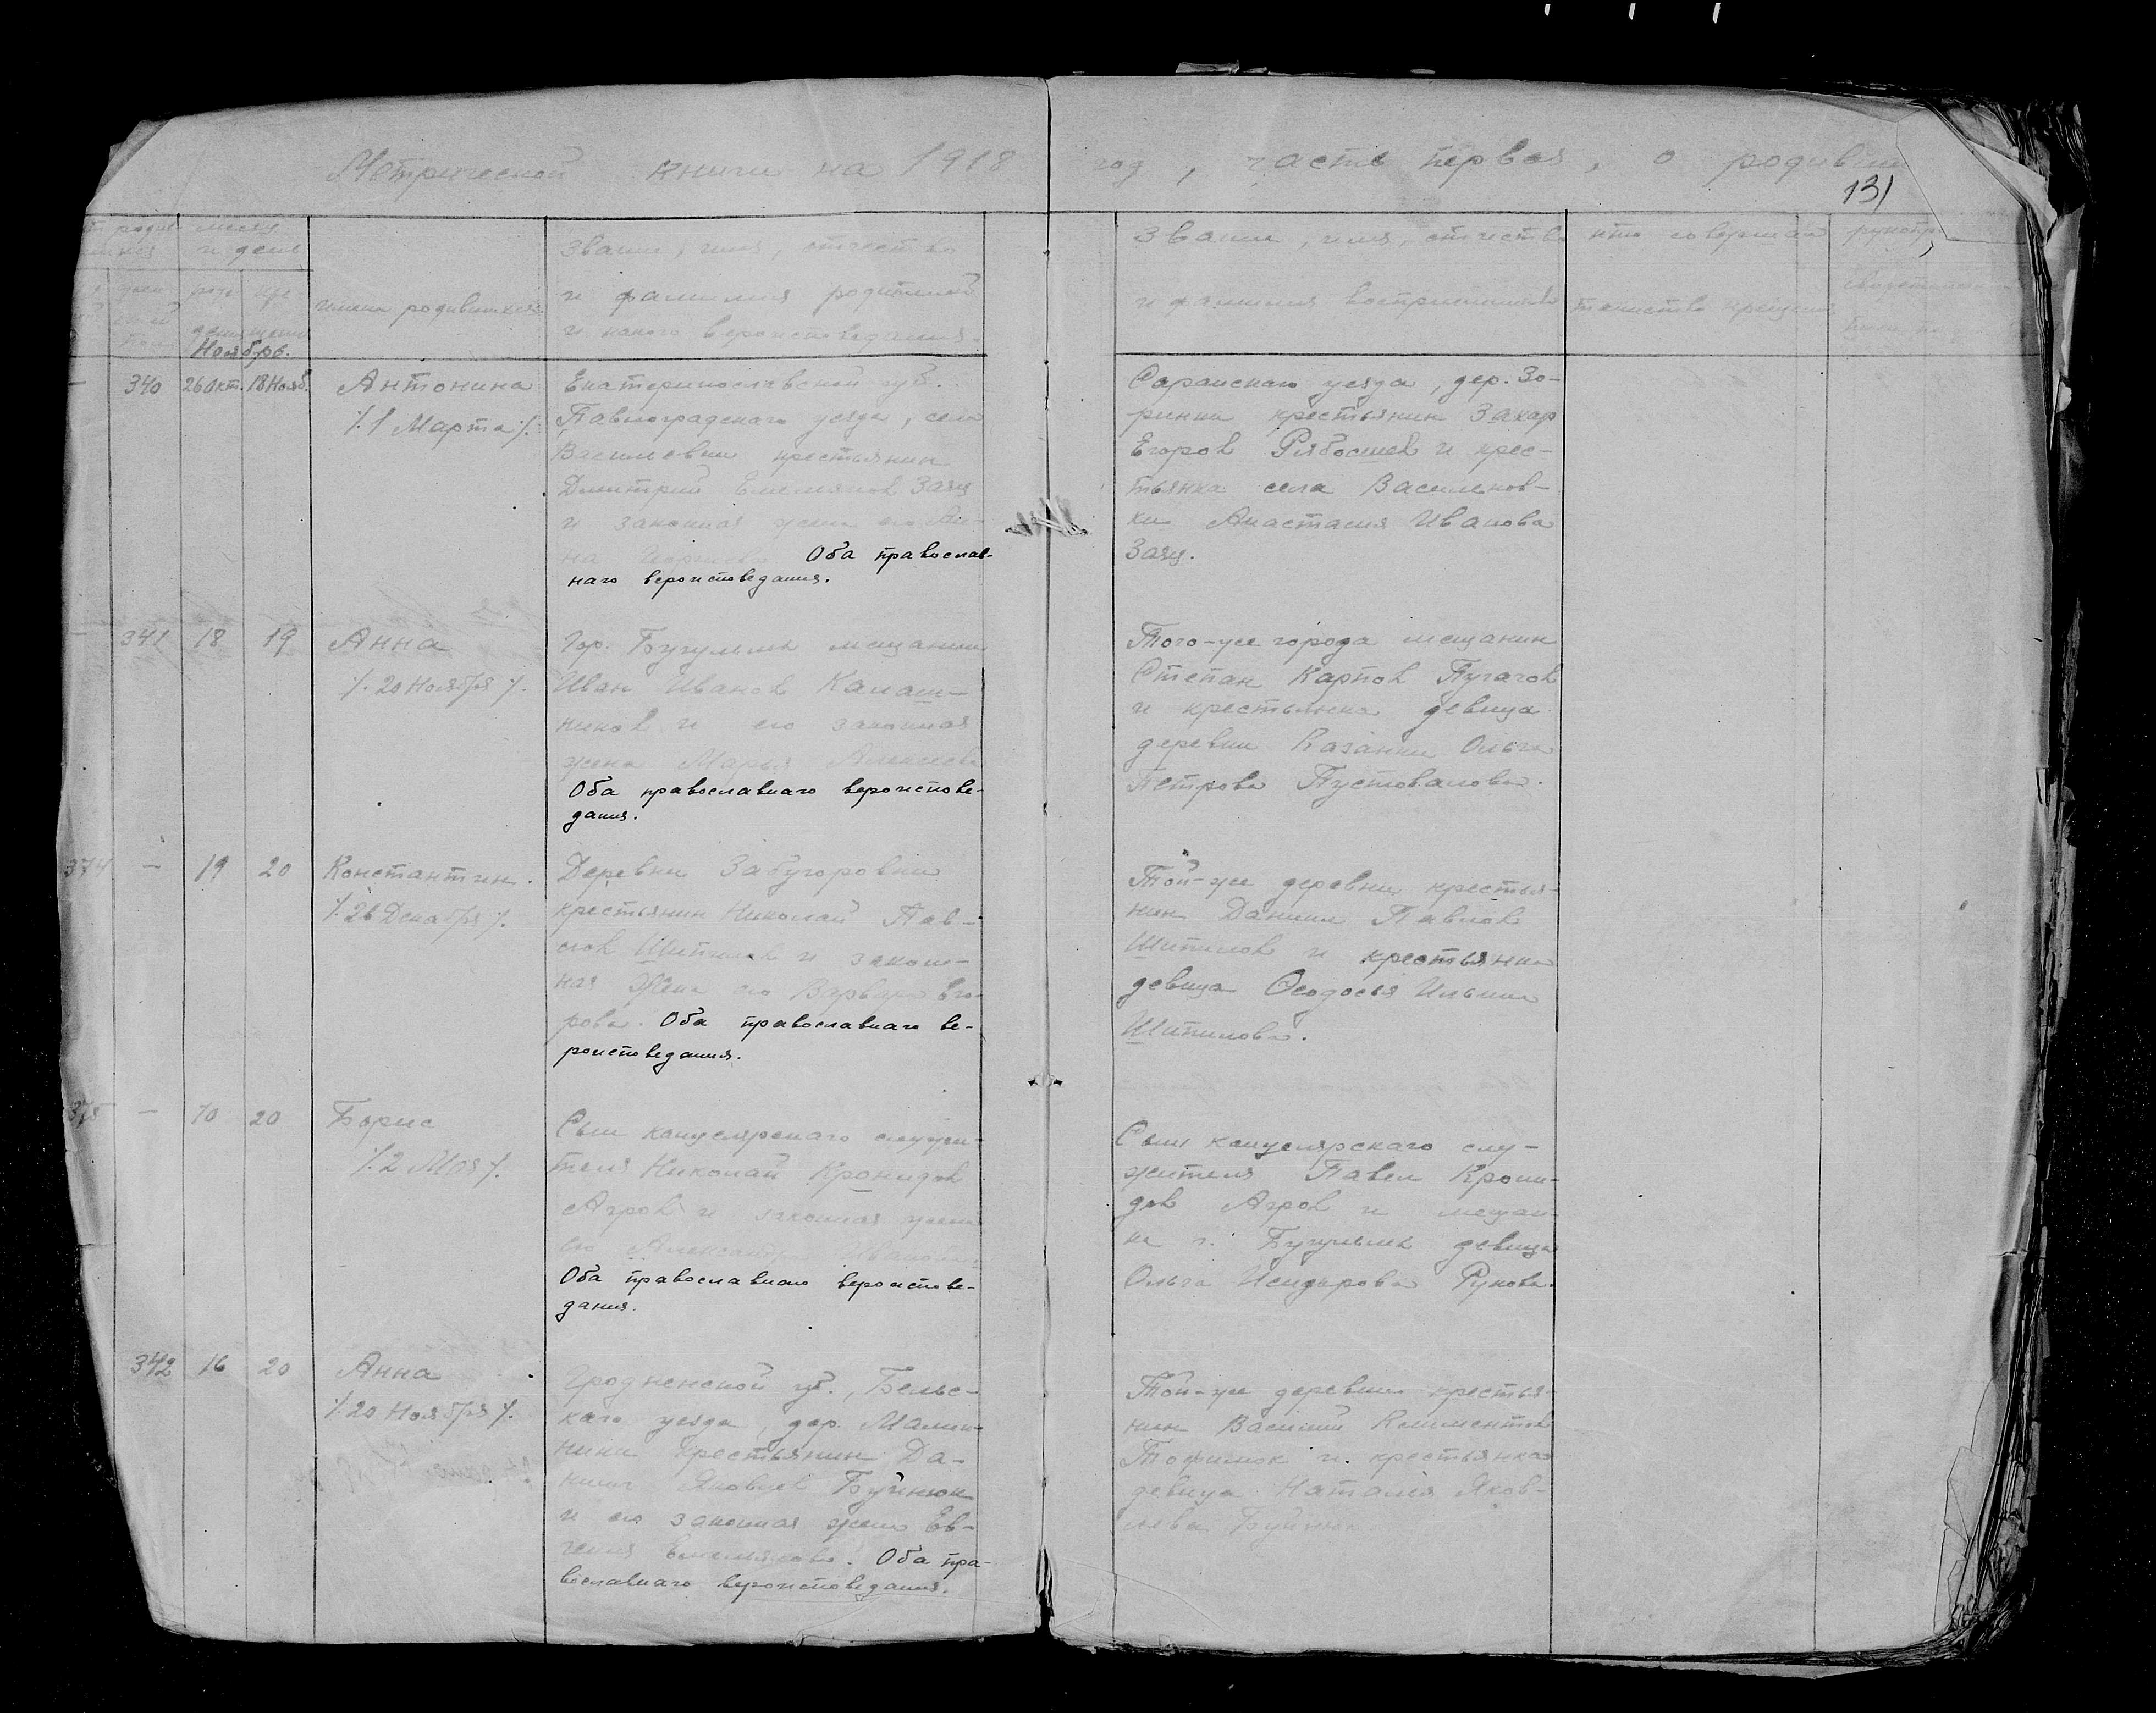 Метрической книги на 1918 год, часть первая, о родивш
131
месяц
и день
Звание, имя, отчество
и фамилия родителей
и какого вероисповедания.
имена родившихся
Звание, имя, отчество
и фамилия восприемников
кто совершал
таинство крещения
Ноябрь.
340 26 Окт. 18 Нояб.
Антонина
/. 1 Марта /.
Екатеринославской губ.
Павлоградскаго уезда, села
Васильевки крестьянин
Дмитрий Емельянов Заяц
и законная жена его Ан-
на Оба православ-
наго вероисповедания.
Саранскаго уезда, дер. Зо-
ринки крестьянин Захар
Егоров Рябосшев и крес-
тьянка села Васильков-
ки Анастасия Иванова
Заяц.
341 18 19
Анна
/. 20 Ноября /.
Гор. Бугульмы мещанин
Иван Иванов Калаш-
ников и его законная
жена Марья Алексеева
Оба православнаго вероиспове-
дания.
Того-же города мещанин
Степан Карпов Пугачов
и крестьянка девица
деревни Казанки Ольга
Петрова Пустовалова.
374 — 19 20
Константин.
/. 26 Декабря /.
Деревни Забугоровки
крестьянин Николай Пав-
лов Шипилов и закон-
ная Жена его Варвара Его-
рова. Оба православнаго ве-
роисповедания.
Той-же деревни крестья-
нин Даниил Павлов
Шипилов и крестьянка
девица Феодосья Ильина
Шипилова.
375 — 10 20
Борис
/. 2 Мая /.
Сын канцелярскаго служи-
теля Николай Кронидов
Агров и законная жена
его Александра Иванова
Оба православнаго вероиспове-
дания.
Сын канцелярскаго слу-
жителя Павел Крони-
дов Агров и мещан-
ка г. Бугульмы девица
Ольга Исидорова Рунова.
342 16 20
Анна
/. 20 Ноября /.
Гродненской губ., Бельс-
каго уезда, дер. Малин-
ники Крестьянин Да-
ниил Яковлев Буйнюк
и его законная жена Ев-
гения Емельянова. Оба пра-
вославнаго вероисповедания.
Той-же деревни крестья-
нин Василий Климентов
Тофилюк и крестьянка
девица Наталия Яков-
лева Буйнюк